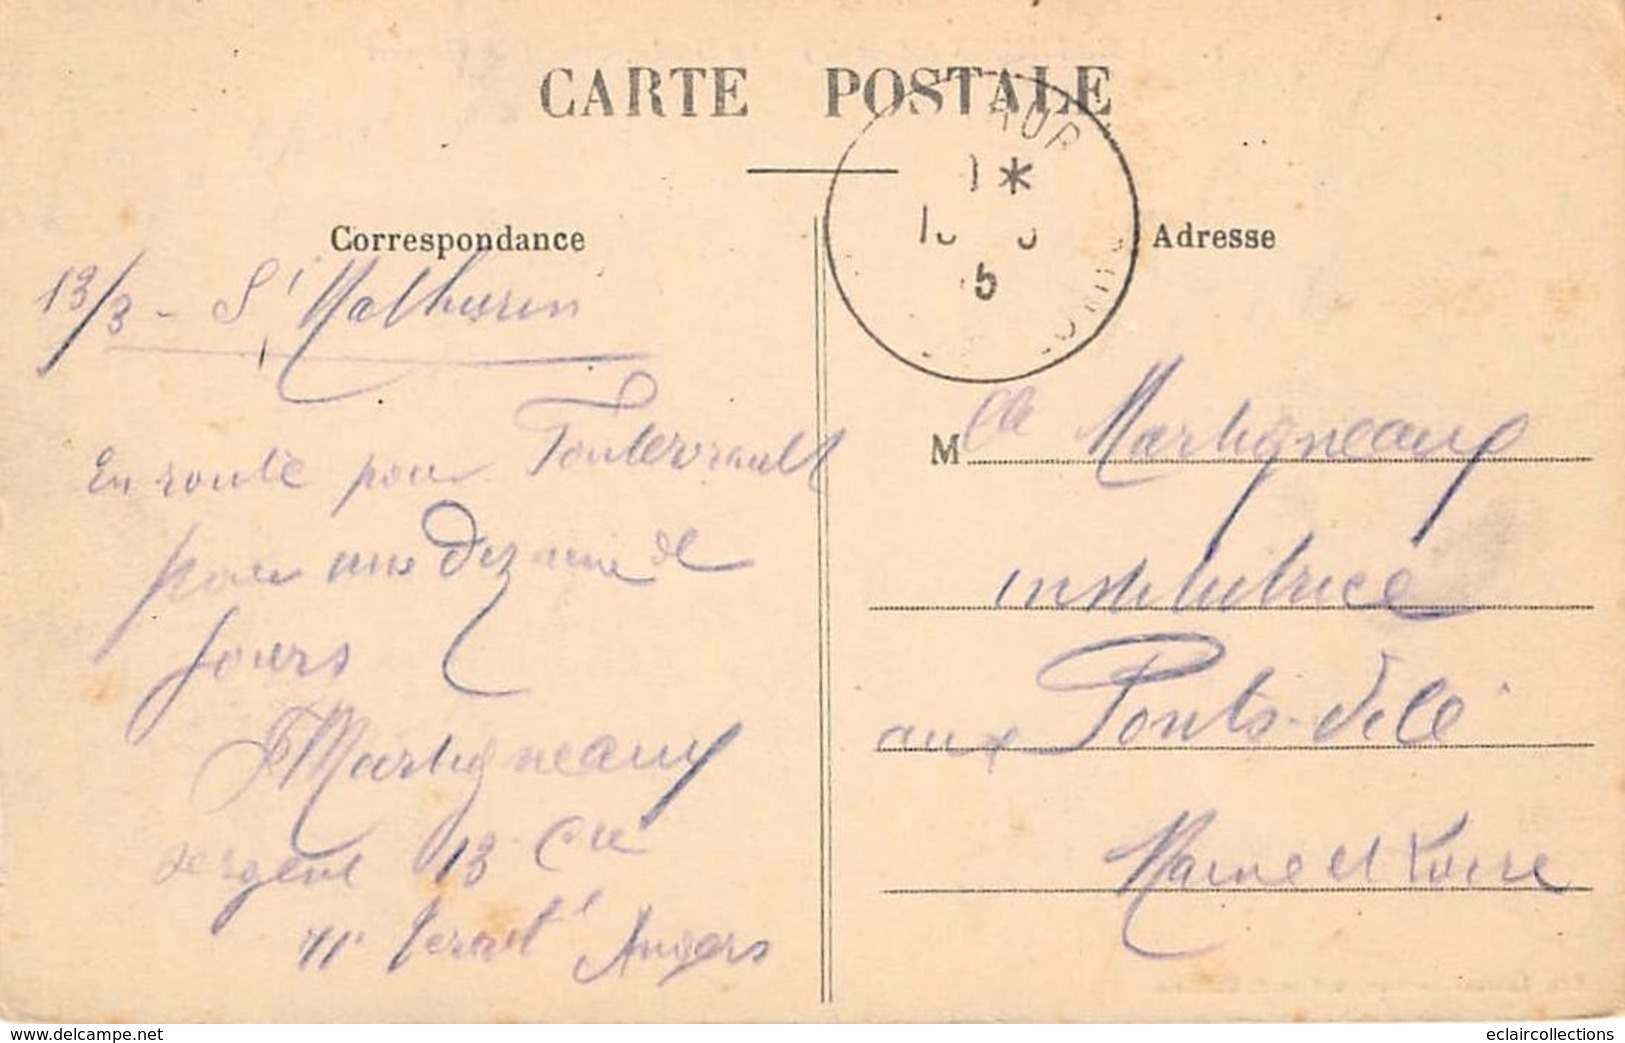 CARTE POSTALE
Correspondance
13/3 - St Mathurin
En route pour Fontevrault
pour une dizaine de
jours
Martigneaux
sergent 13e Cie
71e territ Angers
Adresse
Mlle Martigneaux
institutrice
aux Ponts-de-Cé
Maine et Loire
eclaircollections